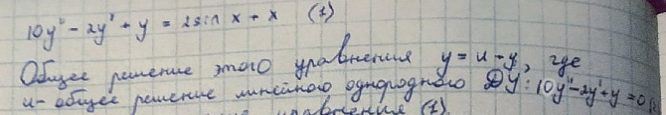 10y'' - 2y' + y = 2sin x + x (1)
Общее решение этого уравнения y = u - y, где
u - общее решение линейного однородного ДУ: 10y'' - 2y' + y = 0
уравнения (1).